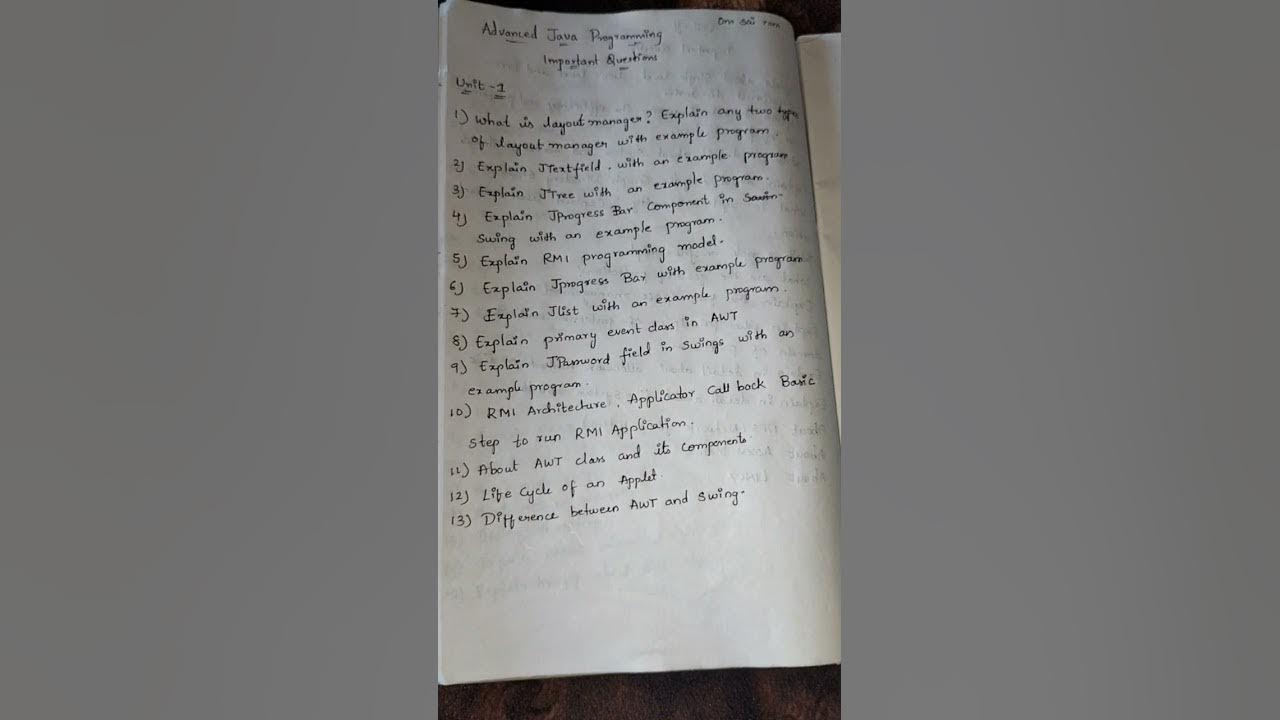 Om sai ram
Advanced Java Programming
Important Questions
Unit-1
1) What is layout manager? Explain any two types
of layout manager with example program.
2) Explain JTextfield. with an example program
3) Explain JTree with an example program.
4) Explain JProgress Bar Component in
Swing with an example program.
5) Explain RMI programming model.
6) Explain Jprogress Bar with example program
7) Explain Jlist with an example program.
8) Explain primary event class in AWT
9) Explain JPassword field in swings with an
example program.
10) RMI Architecture. Applicator Call back Basic
step to run RMI Application.
11) About AWT class and its components
12) Life Cycle of an Applet.
13) Difference between AWT and swing.